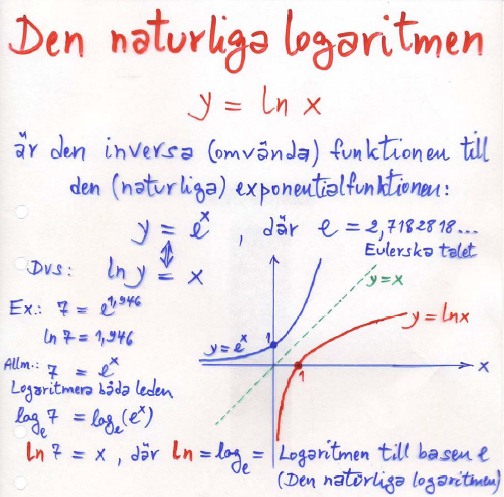 Den naturliga logaritmen
y = ln x
är den inversa (omvända) funktionen till
den (naturliga) exponentialfunktionen:
y = eˣ , där e = 2,7182818...
Eulerska talet
Dvs: ln y = x
Ex.: 7 = e^1,946
ln 7 = 1,946
y = eˣ
1
y = x
y = ln x
x
1
Allm.: 7 = eˣ
Logaritmera båda leden
logₑ 7 = logₑ(eˣ)
ln 7 = x , där ln = logₑ = Logaritmen till basen e
(Den naturliga logaritmen)